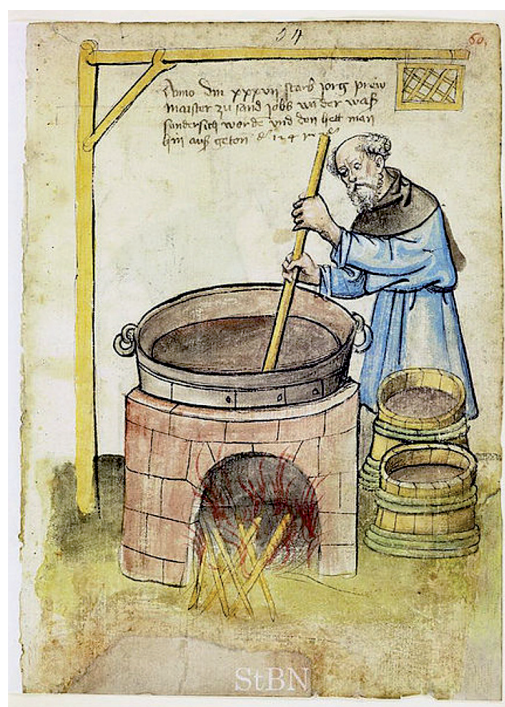 60.
Anno dm xxxvii starb jorg prew
maister zu sand jobs der waß
sundersich worde vnd den hett man
hin auß geton
StBN